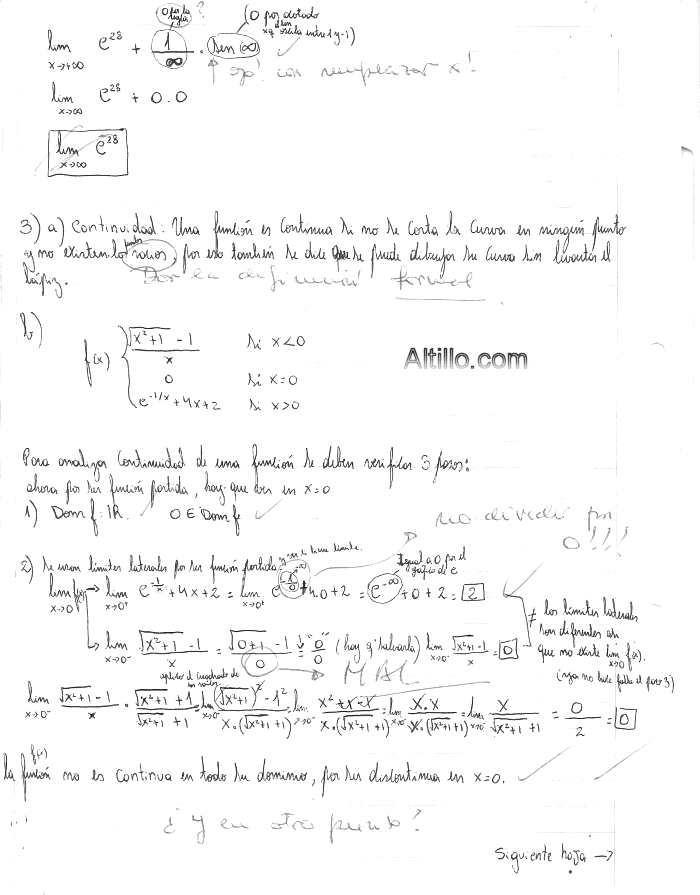 0 por la regla ?
(0 por acotado
oscila entre 1 y -1)
lim x→+∞ e^28 + 1/∞ · (sen (∞)) ✓
↑ ojo! con remplazar x!
lim x→∞ e^28 + 0.0
lim x→∞ e^28
3) a) Continuidad: Una función es continua si no se corta la curva en ningún punto
y no existen los puntos vacios, por eso también se dice que se puede dibujar su curva sin levantar el
lápiz. Dar la definición formal
b)
f(x) { √(x²+1) - 1 / x si x<0
0 si x=0
e^-1/x + 4x + 2 si x>0
Altillo.com
Para analizar continuidad de una función se deben verificar 3 pasos:
ahora por ser función partida, hay que ver en x=0
1) Dom f: IR. ✓ 0 ∈ Dom f ✓
no dividir por
0!!!
2) Se usan límites laterales por ser función partida y ver si tiene límite.
Igual a 0 por el
gráfico de e
lim x→0 f(x) → lim x→0⁺ e^-1/x + 4x + 2 = lim x→0⁺ e^-1/0 + 4.0 + 2 = e^-∞ + 0 + 2 = 2
↳ lim x→0⁻ √(x²+1) - 1 / x = √(0+1) - 1 / 0 = "0/0" (hay q' salvarla) lim x→0⁻ √(x²+1) - 1 / x = 0
≠ los límites laterales
son diferentes asi
que no existe lim x→0 f(x).
(ya no hace falta el paso 3)
MAL
aplico el cuadrado de
lim x→0⁻ √(x²+1) - 1 / x · √(x²+1) + 1 / √(x²+1) + 1 = lim x→0⁻ (√(x²+1))² - 1² / x.(√(x²+1)+1) = lim x→0⁻ x² + 1 - 1 / x.(√(x²+1)+1) = lim x→0⁻ x.x / x.(√(x²+1)+1) = lim x→0⁻ x / √(x²+1) + 1 = 0/2 = 0
la función f(x) no es continua en todo su dominio, por ser discontinua en x=0. ✓
¿Y en otro punto?
Siguiente hoja →